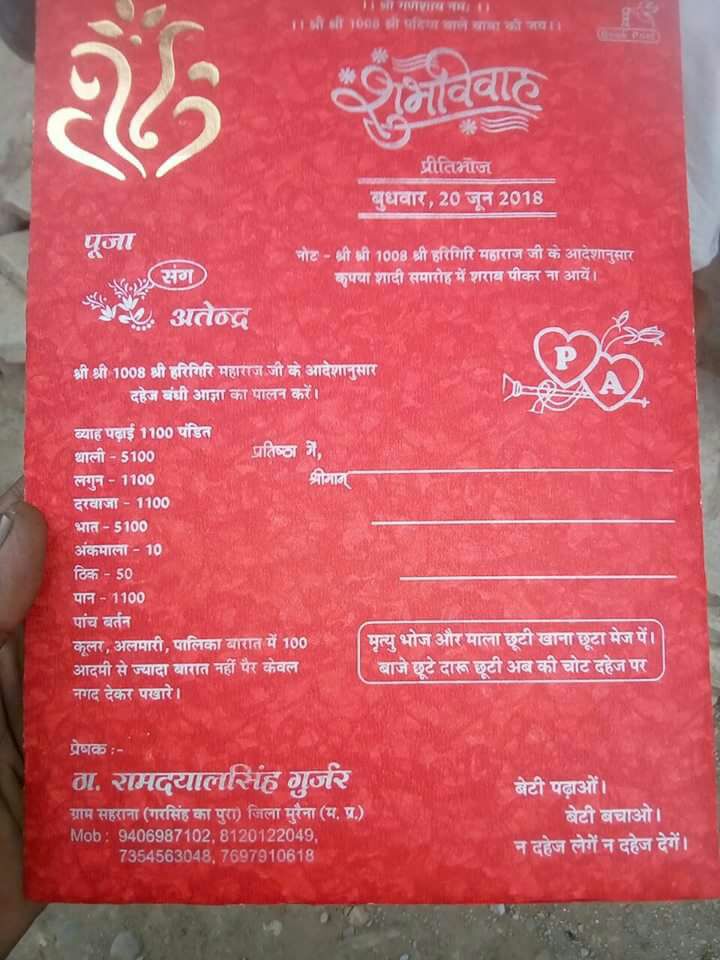 ।। श्री गणेशाय नमः ।।
।। श्री श्री 1008 श्री पटिया वाले बाबा की जय।।
Book Post
शुभविवाह
प्रीतिभोज
बुधवार, 20 जून 2018
पूजा
संग
अतेन्द्र
नोट - श्री श्री 1008 श्री हरिगिरि महाराज जी के आदेशानुसार
कृपया शादी समारोह में शराब पीकर ना आयें।
P A
श्री श्री 1008 श्री हरिगिरि महाराज जी के आदेशानुसार
दहेज बंधी आज्ञा का पालन करें।
ब्याह पढ़ाई 1100 पंडित
थाली - 5100
लगुन - 1100
दरवाजा - 1100
भात - 5100
अंकमाला - 10
ठिक - 50
पान - 1100
पांच बर्तन
कूलर, अलमारी, पालिका बारात में 100
आदमी से ज्यादा बारात नहीं पैर केवल
नगद देकर पखारे।
प्रतिष्ठा में,
श्रीमान्
मृत्यु भोज और माला छूटी खाना छूटा मेज पें।
बाजे छूटे दारू छूटी अब की चोट दहेज पर
प्रेषक :-
ठा. रामदयालसिंह गुर्जर
ग्राम सहराना (गरसिंह का पुरा) जिला मुरैना (म. प्र.)
Mob : 9406987102, 8120122049,
7354563048, 7697910618
बेटी पढ़ाओं।
बेटी बचाओ।
न दहेज लेगें न दहेज देगें।